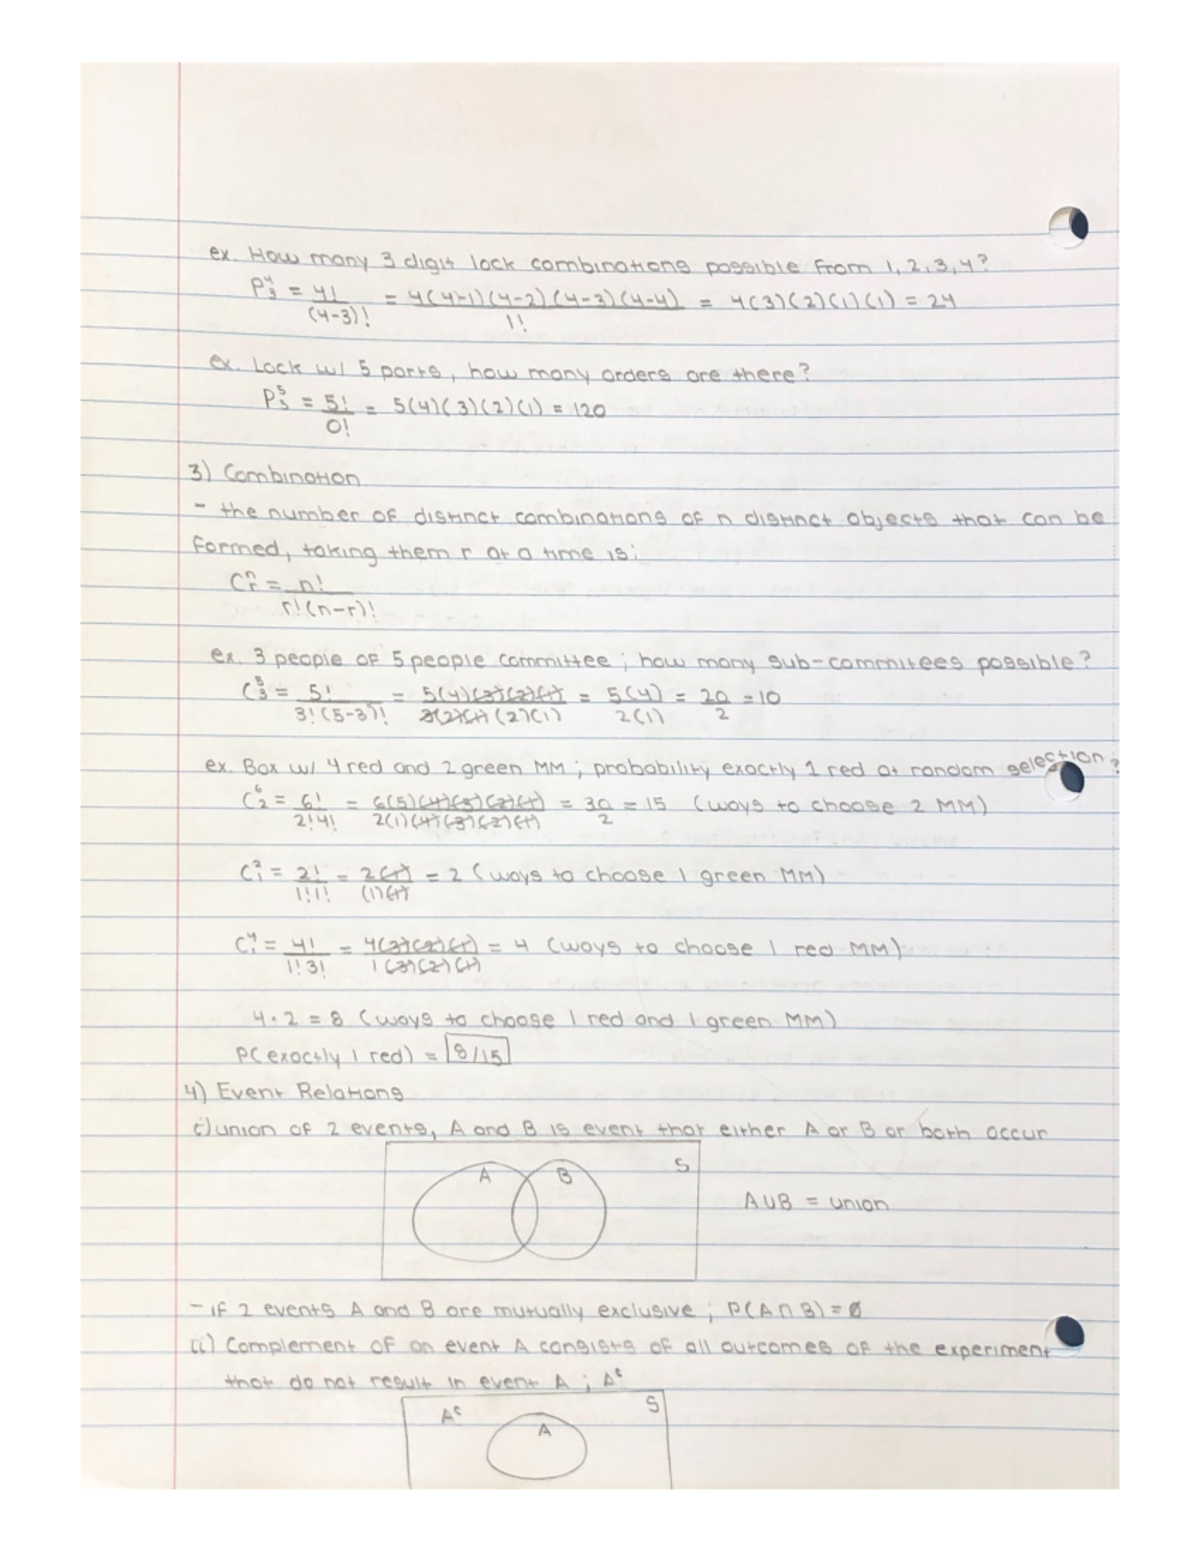 ex. How many 3 digit lock combinations possible from 1, 2, 3, 4?
P⁴₃ = 4!/(4-3)! = 4(4-1)(4-2)(4-3)(4-4)/1! = 4(3)(2)(1)(1) = 24
ex. Lock w/ 5 parts, how many orders are there?
P⁵₅ = 5!/0! = 5(4)(3)(2)(1) = 120
3) Combination
- the number of distinct combinations of n distinct objects that can be
formed, taking them r at a time is:
Cⁿᵣ = n!/r!(n-r)!
ex. 3 people of 5 people committee; how many sub-commitees possible?
C⁵₃ = 5!/3!(5-3)! = 5(4)(3)(2)(1)/3(2)(1)(2)(1) = 5(4)/2(1) = 20/2 = 10
ex. Box w/ 4 red and 2 green MM; probability exactly 1 red at random selection?
C⁶₂ = 6!/2!4! = 6(5)(4)(3)(2)(1)/2(1)(4)(3)(2)(1) = 30/2 = 15 (ways to choose 2 MM)
C²₁ = 2!/1!1! = 2(1)/(1)(1) = 2 (ways to choose 1 green MM)
C⁴₁ = 4!/1!3! = 4(3)(2)(1)/1(3)(2)(1) = 4 (ways to choose 1 red MM)
4·2 = 8 (ways to choose 1 red and 1 green MM)
P(exactly 1 red) = 8/15
4) Event Relations
i) union of 2 events, A and B is event that either A or B or both occur
A B S
A∪B = union
- if 2 events A and B are mutually exclusive; P(A∩B) = Ø
ii) Complement of an event A consists of all outcomes of the experiment
that do not result in event A; Aᶜ
Aᶜ A S